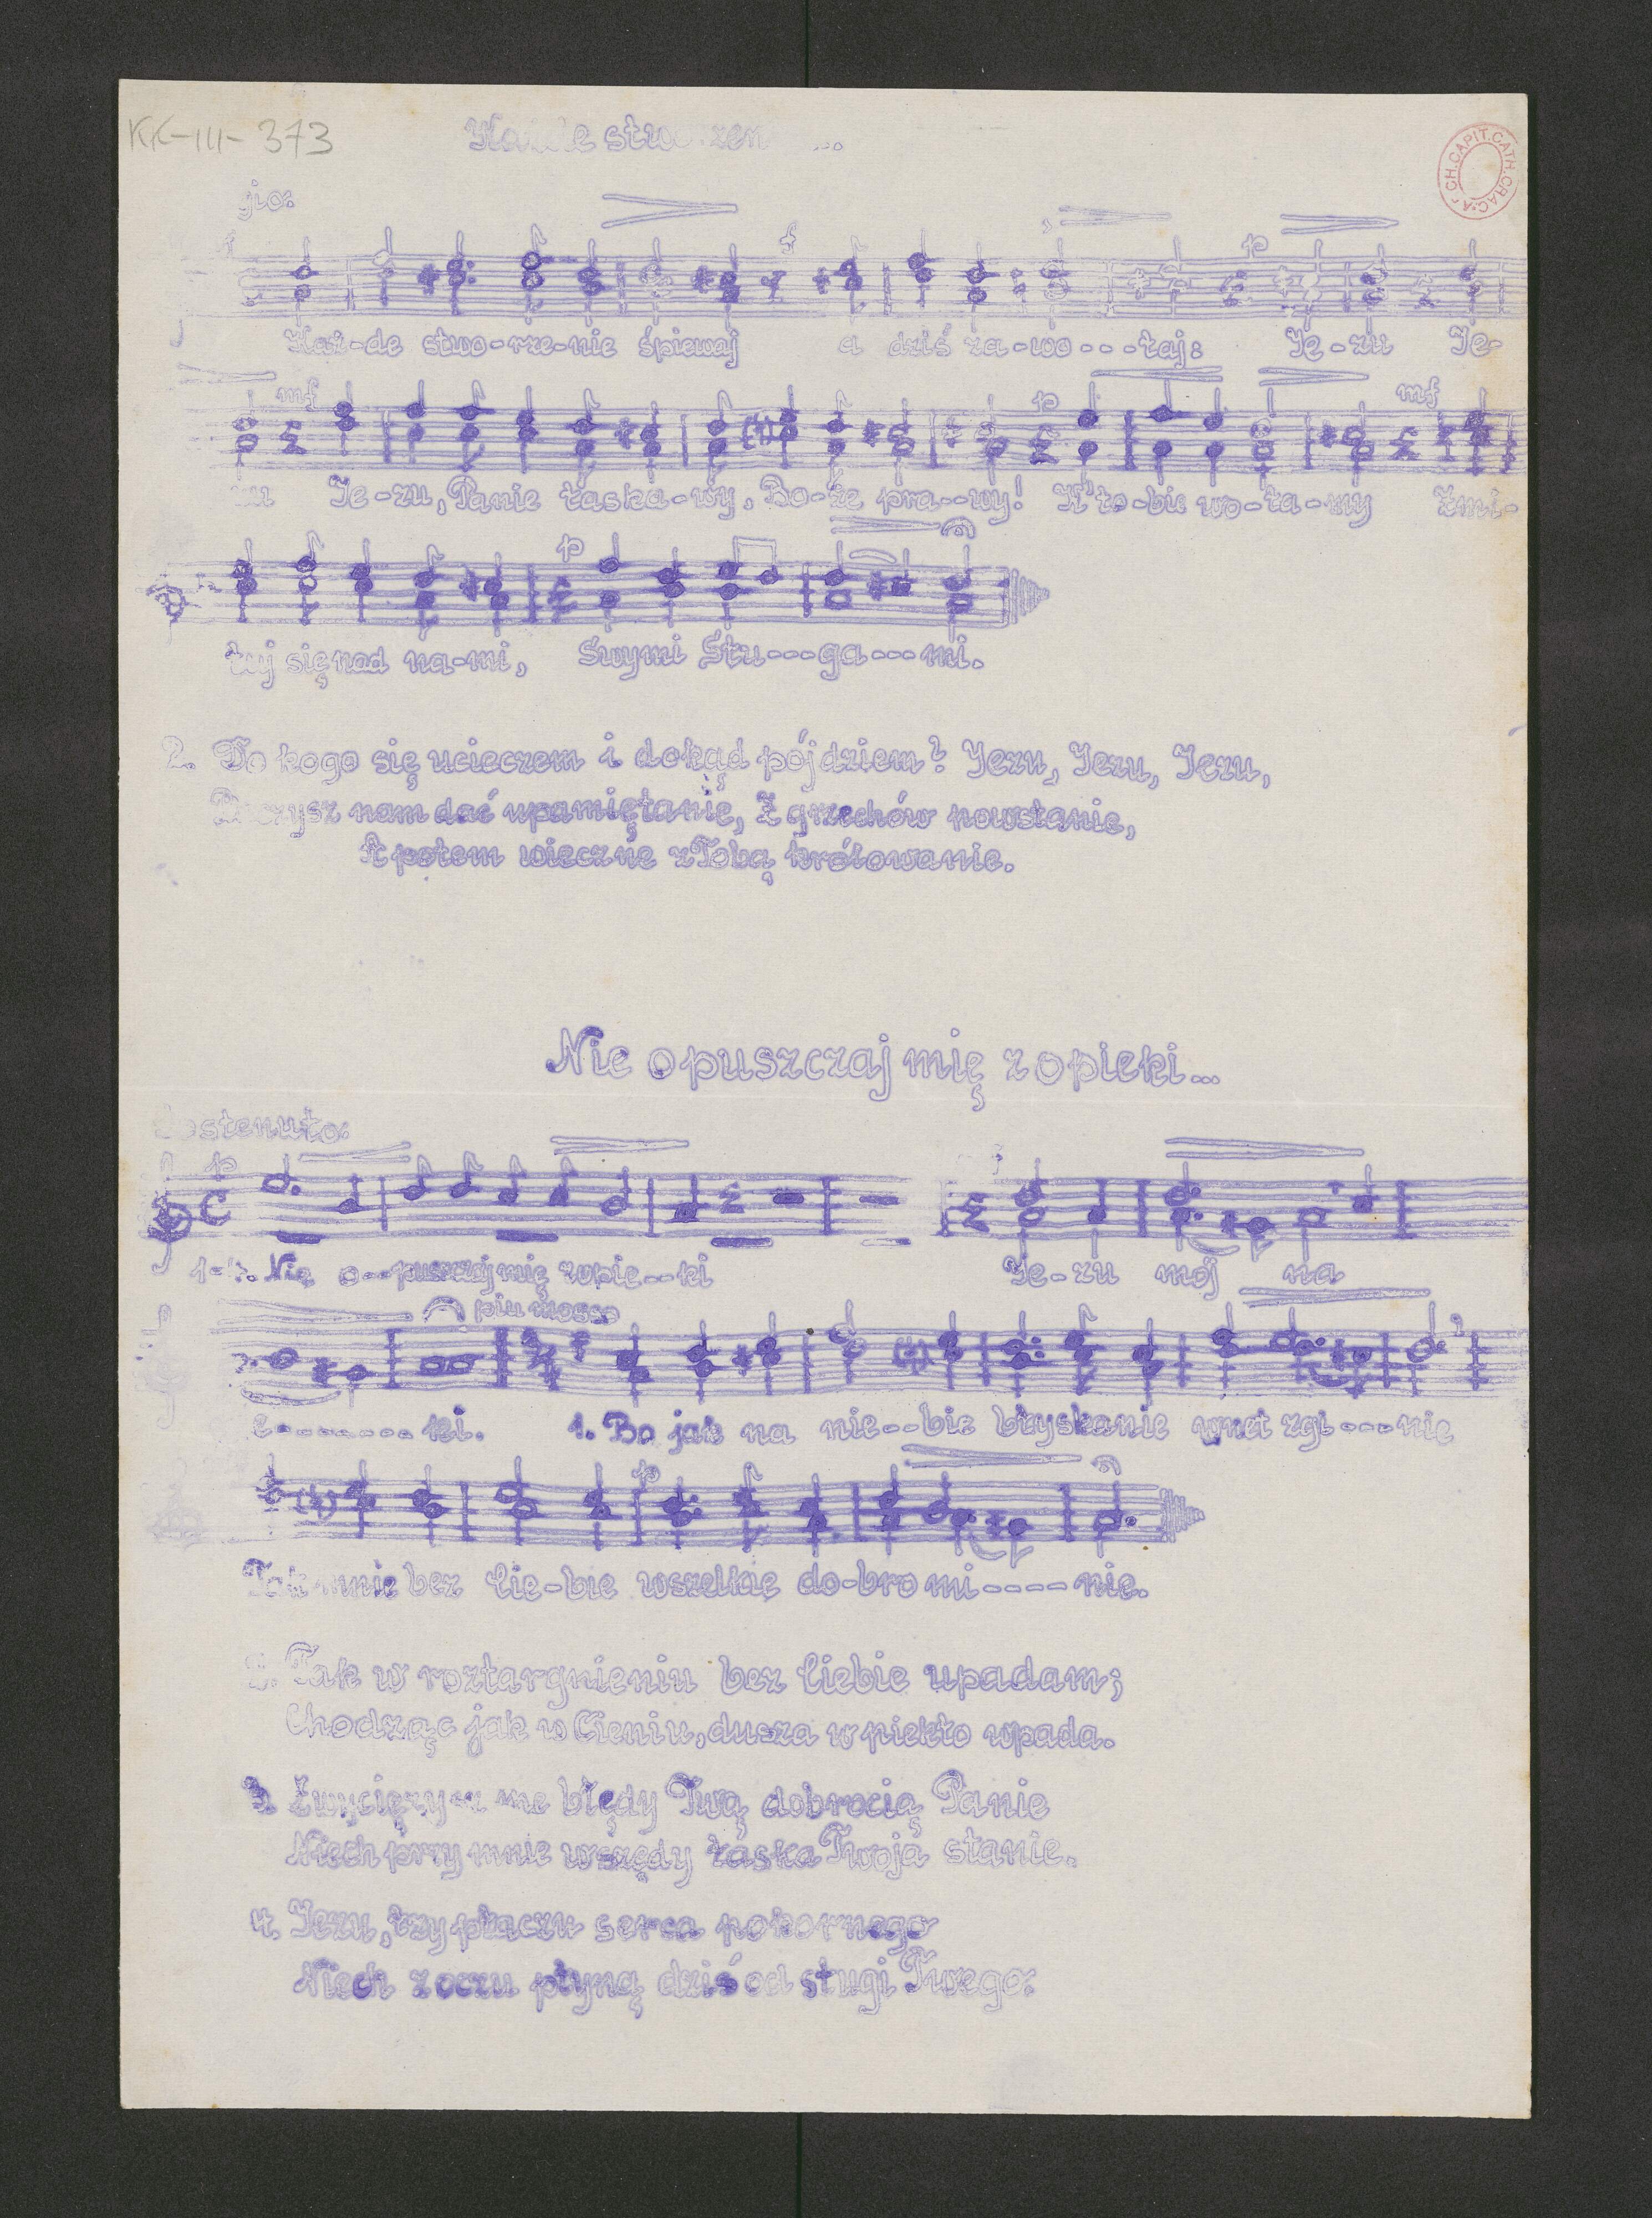 KK-III-373
Każde stworzen ...
gio:
f p
Każ-de stwo-rze-nie śpiewaj a dziś za-wo---łaj: Je-zu Je-
mf p mf
zu Je-zu, Panie łaska-wy, Bo-że pra--wy! K'to-bie wo-ła-my Zmi-
p
łuj się nad na-mi, Swymi Słu---ga---mi.
2. Do kogo się ucieczem i dokąd pójdziem? Jezu, Jezu, Jezu,
Raczysz nam dać upamiętanie, Z grzechów powstanie,
A potem wieczne z Tobą królowanie.
Nie opuszczaj mię z opieki...
Sostenuto:
p
1-4. Nie o--puszczaj mię zopie--ki Je-zu mój na
piu mosso
e--------ki. 1. Bo jak na nie--bie błyskanie wnet zgi---nie
p
Tak mnie bez Cie-bie wszelkie do-bro mi----nie.
2. Tak w roztargnieniu bez Ciebie upadam;
Chodząc jak w Cieniu, dusza w piekło wpada.
3. Zwycięży me błędy Twą dobrocią Panie
Niech przy mnie wszędy łaska Twoja stanie.
4. Jezu, łzy płaczu serca pokornego
Niech z oczu płyną dziś od sługi Twego:
A CH.CAPIT.CATH.CRAC.